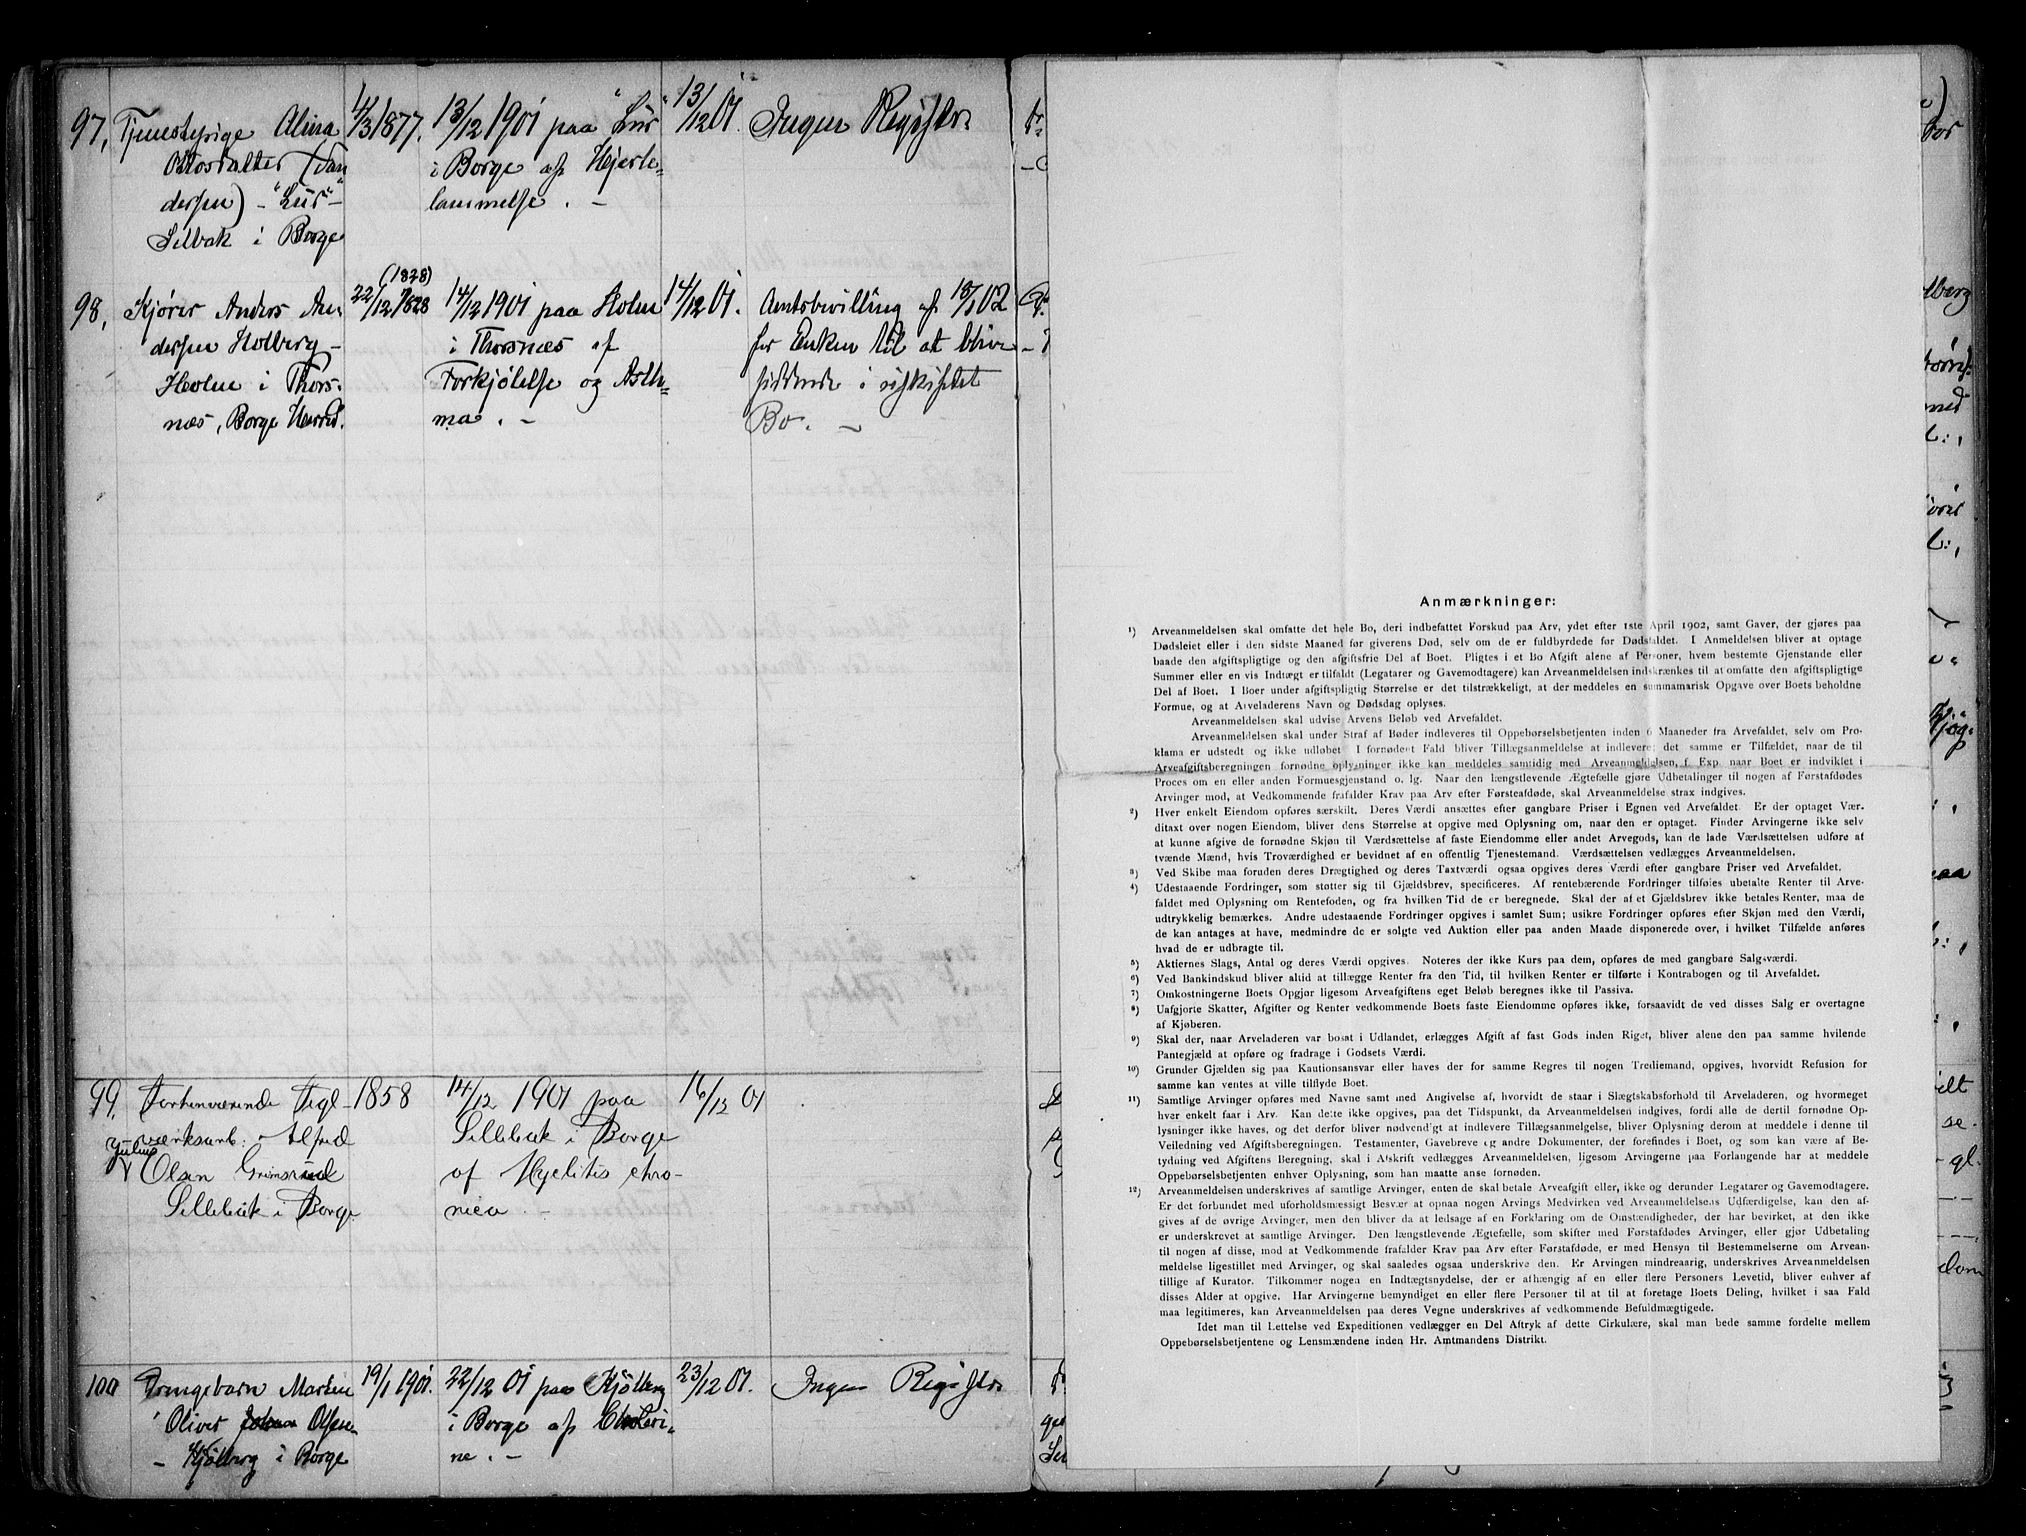 97, Tjenestepige Alina 4/3 1877. 13/12 1901 paa "Lur" 13/12 01. Ingen Registr.
i Borge af Hjerte-
dersen) - "Lur" - lammelse. -
Silbak i Borge
98, Kjører Anders An- 22/12 1828 (1828) 14/12 1901 paa Holm 14/12 01. Amtsbevilling af 18/1 02
dersen Holberg - i Thorsnæs af for Enken til at blive
Holm i Thors- Forkjølelse og Asth- siddende i uskiftet
næs, Borge Herred. ma. - Bo. -
99, Forhenværende Tegl- 1858 14/12 1901 paa 16/12 01
værksarb. Alfred Sillebæk i Borge
Julius Olsen Grimsrud af Myelitis chro-
Sillebæk i Borge nica. -
100 Drengebarn Marten 19/1 1901. 22/12 01 paa Kjølberg 23/12 01. Ingen Registr.
Oliver Olsen - i Borge af Choleri-
- Kjølberg i Borge ne. -
Anmærkninger:
1) Arveanmeldelsen skal omfatte det hele Bo, deri indbefattet Forskud paa Arv, ydet efter 1ste April 1902, samt Gaver, der gjøres paa
Dødsleiet eller i den sidste Maaned før giverens Død, selv om de er fuldbyrdede før Dødsfaldet. I Anmeldelsen bliver at optage
baade den afgiftspligtige og den afgiftsfrie Del af Boet. Pligtes i et Bo Afgift alene af Personer, hvem bestemte Gjenstande eller
Summer eller en vis Indtægt er tilfaldt (Legatarer og Gavemodtagere) kan Arveanmeldelsen indskrænkes til at omfatte den afgiftspligtige
Del af Boet. I Boer under afgiftspligtig Størrelse er det tilstrækkeligt, at der meddeles en summamarisk Opgave over Boets beholdne
Formue, og at Arveladerens Navn og Dødsdag oplyses.
Arveanmeldelsen skal udvise Arvens Beløb ved Arvefaldet.
Arveanmeldelsen skal under Straf af Bøder indleveres til Oppebørselsbetjenten inden 6 Maaneder fra Arvefaldet, selv om Pro-
klama er udstedt og ikke udløbet. I fornødent Fald bliver Tillægsanmeldelse at indlevere; det samme er Tilfældet, naar de til
Arveafgiftsberegningen fornødne oplysninger ikke kan meddeles samtidig med Arveanmeldelsen, f. Exp. naar Boet er indviklet i
Proces om en eller anden Formuesgjenstand o. lg. Naar den længstlevende Ægtefælle gjøre Udbetalinger til nogen af Førstafdødes
Arvinger mod, at Vedkommende frafalder Krav paa Arv efter Førsteafdøde, skal Arveanmeldelse strax indgives.
2) Hver enkelt Eiendom opføres særskilt. Deres Værdi ansættes efter gangbare Priser i Egnen ved Arvefaldet. Er der optaget Vær-
ditaxt over nogen Eiendom, bliver dens Størrelse at opgive med Oplysning om, naar den er optaget. Finder Arvingerne ikke selv
at kunne afgive de fornødne Skjøn til Værdsættelse af faste Eiendomme eller andet Arvegods, kan de lade Værdsættelsen udføre af
tvænde Mænd, hvis Troværdighed er bevidnet af en offentlig Tjenestemand. Værdsættelsen vedlægges Arveanmeldelsen.
3) Ved Skibe maa foruden deres Drægtighed og deres Taxtværdi ogsaa opgives deres Værdi efter gangbare Priser ved Arvefaldet.
4) Udestaaende Fordringer, som støtter sig til Gjældsbrev, specificeres. Af rentebærende Fordringer tilføies ubetalte Renter til Arve-
faldet med Oplysning om Rentefoden, og fra hvilken Tid de er beregnede. Skal der af et Gjældsbrev ikke betales Renter, maa de
udtrykkelig bemærkes. Andre udestaaende Fordringer opgives i samlet Sum; usikre Fordringer opføres efter Skjøn med den Værdi,
de kan antages at have, medmindre de er solgte ved Auktion eller paa anden Maade disponerede over, i hvilket Tilfælde anføres
hvad de er udbragte til.
5) Aktiernes Slags, Antal og deres Værdi opgives. Noteres der ikke Kurs paa dem, opføres de med gangbare Salgsværdi.
6) Ved Bankindskud bliver altid at tillægge Renter fra den Tid, til hvilken Renter er tilførte i Kontrabogen og til Arvefaldet.
7) Omkostningerne Boets Opgjør ligesom Arveafgiftens eget Beløb beregnes ikke til Passiva.
8) Uafgjorte Skatter, Afgifter og Renter vedkommende Boets faste Eiendomme opføres ikke, forsaavidt de ved disses Salg er overtagne
af Kjøberen.
9) Skal der, naar Arveladeren var bosat i Udlandet, erlægges Afgift af fast Gods inden Riget, bliver alene den paa samme hvilende
Pantegjæld at opføre og fradrage i Godsets Værdi.
10) Grunder Gjælden sig paa Kautionsansvar eller haves der for samme Regres til nogen Trediemand, opgives, hvorvidt Refusion for
samme kan ventes at ville tilflyde Boet.
11) Samtlige Arvinger opføres med Navne samt med Angivelse af, hvorvidt de staar i Slægtskabsforhold til Arveladeren, og hvormeget
hver enkelt faar i Arv. Kan dette ikke opgives, paa det Tidspunkt, da Arveanmeldelsen indgives, fordi alle de dertil fornødne Op-
lysninger ikke haves, og det derfor bliver nødvendigt at indlevere Tillægsanmelgelse, bliver Oplysning derom at meddele i denne til
Veiledning ved Afgiftsberegningen. Testamenter, Gavebreve og andre Dokumenter, der forefindes i Boet, og som kan være af Be-
tydning ved Afgiftens Beregning, skal i Afskrift vedlægges Arveanmeldelsen, ligesom Arvingerne paa Forlangende har at meddele
Oppebørselsbetjenten enhver Oplysning, som han maatte anse fornøden.
12) Arveanmeldelsen underskrives af samtlige Arvinger, enten de skal betale Arveafgift eller, ikke og derunder Legatarer og Gavemodtagere.
Er det forbundet med uforholdsmæssigt Besvær at opnaa nogen Arvings Medvirken ved Arveanmeldelsens Udfærdigelse, kan den af-
gives af de øvrige Arvinger, men den bliver da at ledsage af en Forklaring om de Omstændigheder, der har bevirket, at den ikke
er underskrevet at samtlige Arvinger. Den længstlevende Ægtefælle, som skifter med Førstafdødes Arvinger, eller gjør Udbetaling
til nogen af disse, mod at Vedkommende frafalder Krav paa Arv efter Førstafdøde, er med Hensyn til Bestemmelserne om Arvean-
meldelse ligestillet med Arvinger, og skal saaledes ogsaa underskrive den. Er Arvingen mindreaarig, underskrives Arveanmeldelsen
tillige af Kurator. Tilkommer nogen en Indtægtsnydelse, der er afhængig af en eller flere Personers Levetid, bliver enhver af
disses Alder at opgive. Har Arvingerne bemyndiget en eller flere Personer til at til at foretage Boets Deling, hvilket i saa Fald
maa legitimeres, kan Arveanmeldelsen paa deres Vegne underskrives af vedkommende Befuldmægtigede.
Idet man til Lettelse ved Expeditionen vedlægger en Del Aftryk af dette Cirkulære, skal man bede samme fordelte mellem
Oppebørselsbetjentene og Lensmændene inden Hr. Amtmandens Distrikt.